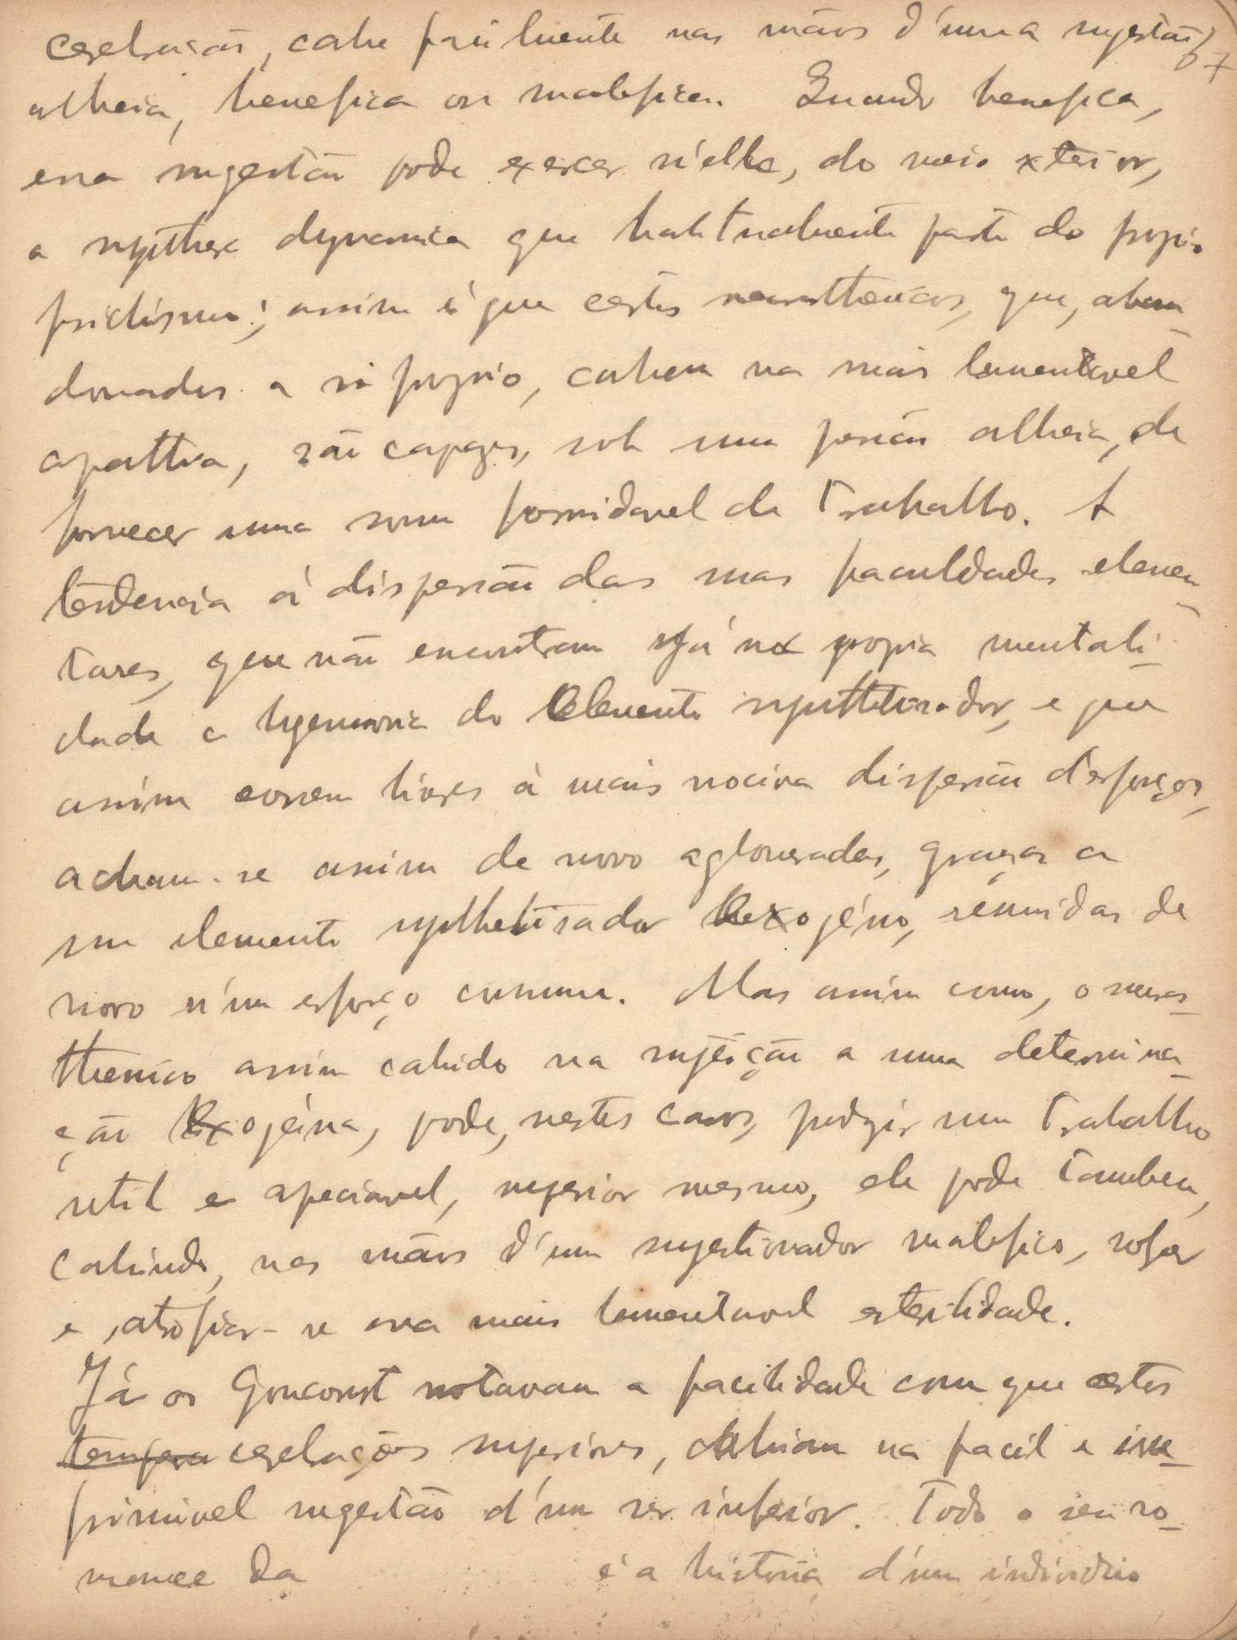 cerebração, cahe facilmente nas mãos d'uma sugestão 67
alheia, benefica ou malefica. Quando benefica,
essa sugestão pode exercer n'elle, do meio exterior,
a synthese dynamica que habitualmente parte do proprio
psichismo; assim é que certos neurasthenicos, que, aban
donados a si proprio, cahem na mais lamentavel
apathia, são capazes, sob uma pressão alheia, de
fornecer uma somma formidavel de trabalho. A
tendencia á dispersão das suas faculdades elemen
tares, que não encontram já na propria mentali-
dade a hegemonia do elemento synthetisador, e que
assim correm livres á mais nociva dispersão d'esforços,
acham-se assim de novo aglomeradas, graças a
um elemento synthetisador exogéno, reunidas de
novo n'um esforço commum. Mas assim como, o neuras-
thenico assim cahido na sujeição a uma determina-
ção exogéna, pode, nestes casos, produzir um trabalho
util e apreciavel, superior mesmo, ele pode tambem,
cahindo, nas mãos d'um sugestionador malefico, sofrer
e atrofiar-se na mais lamentavel esterilidade.
Já os Goncourt notavam a facilidade com que estas
tempera cerebrações superiores, cahiam na facil e irre-
primivel sugestão d'um ser inferior. Todo o seu ro-
mance da é a historia d'um individuo